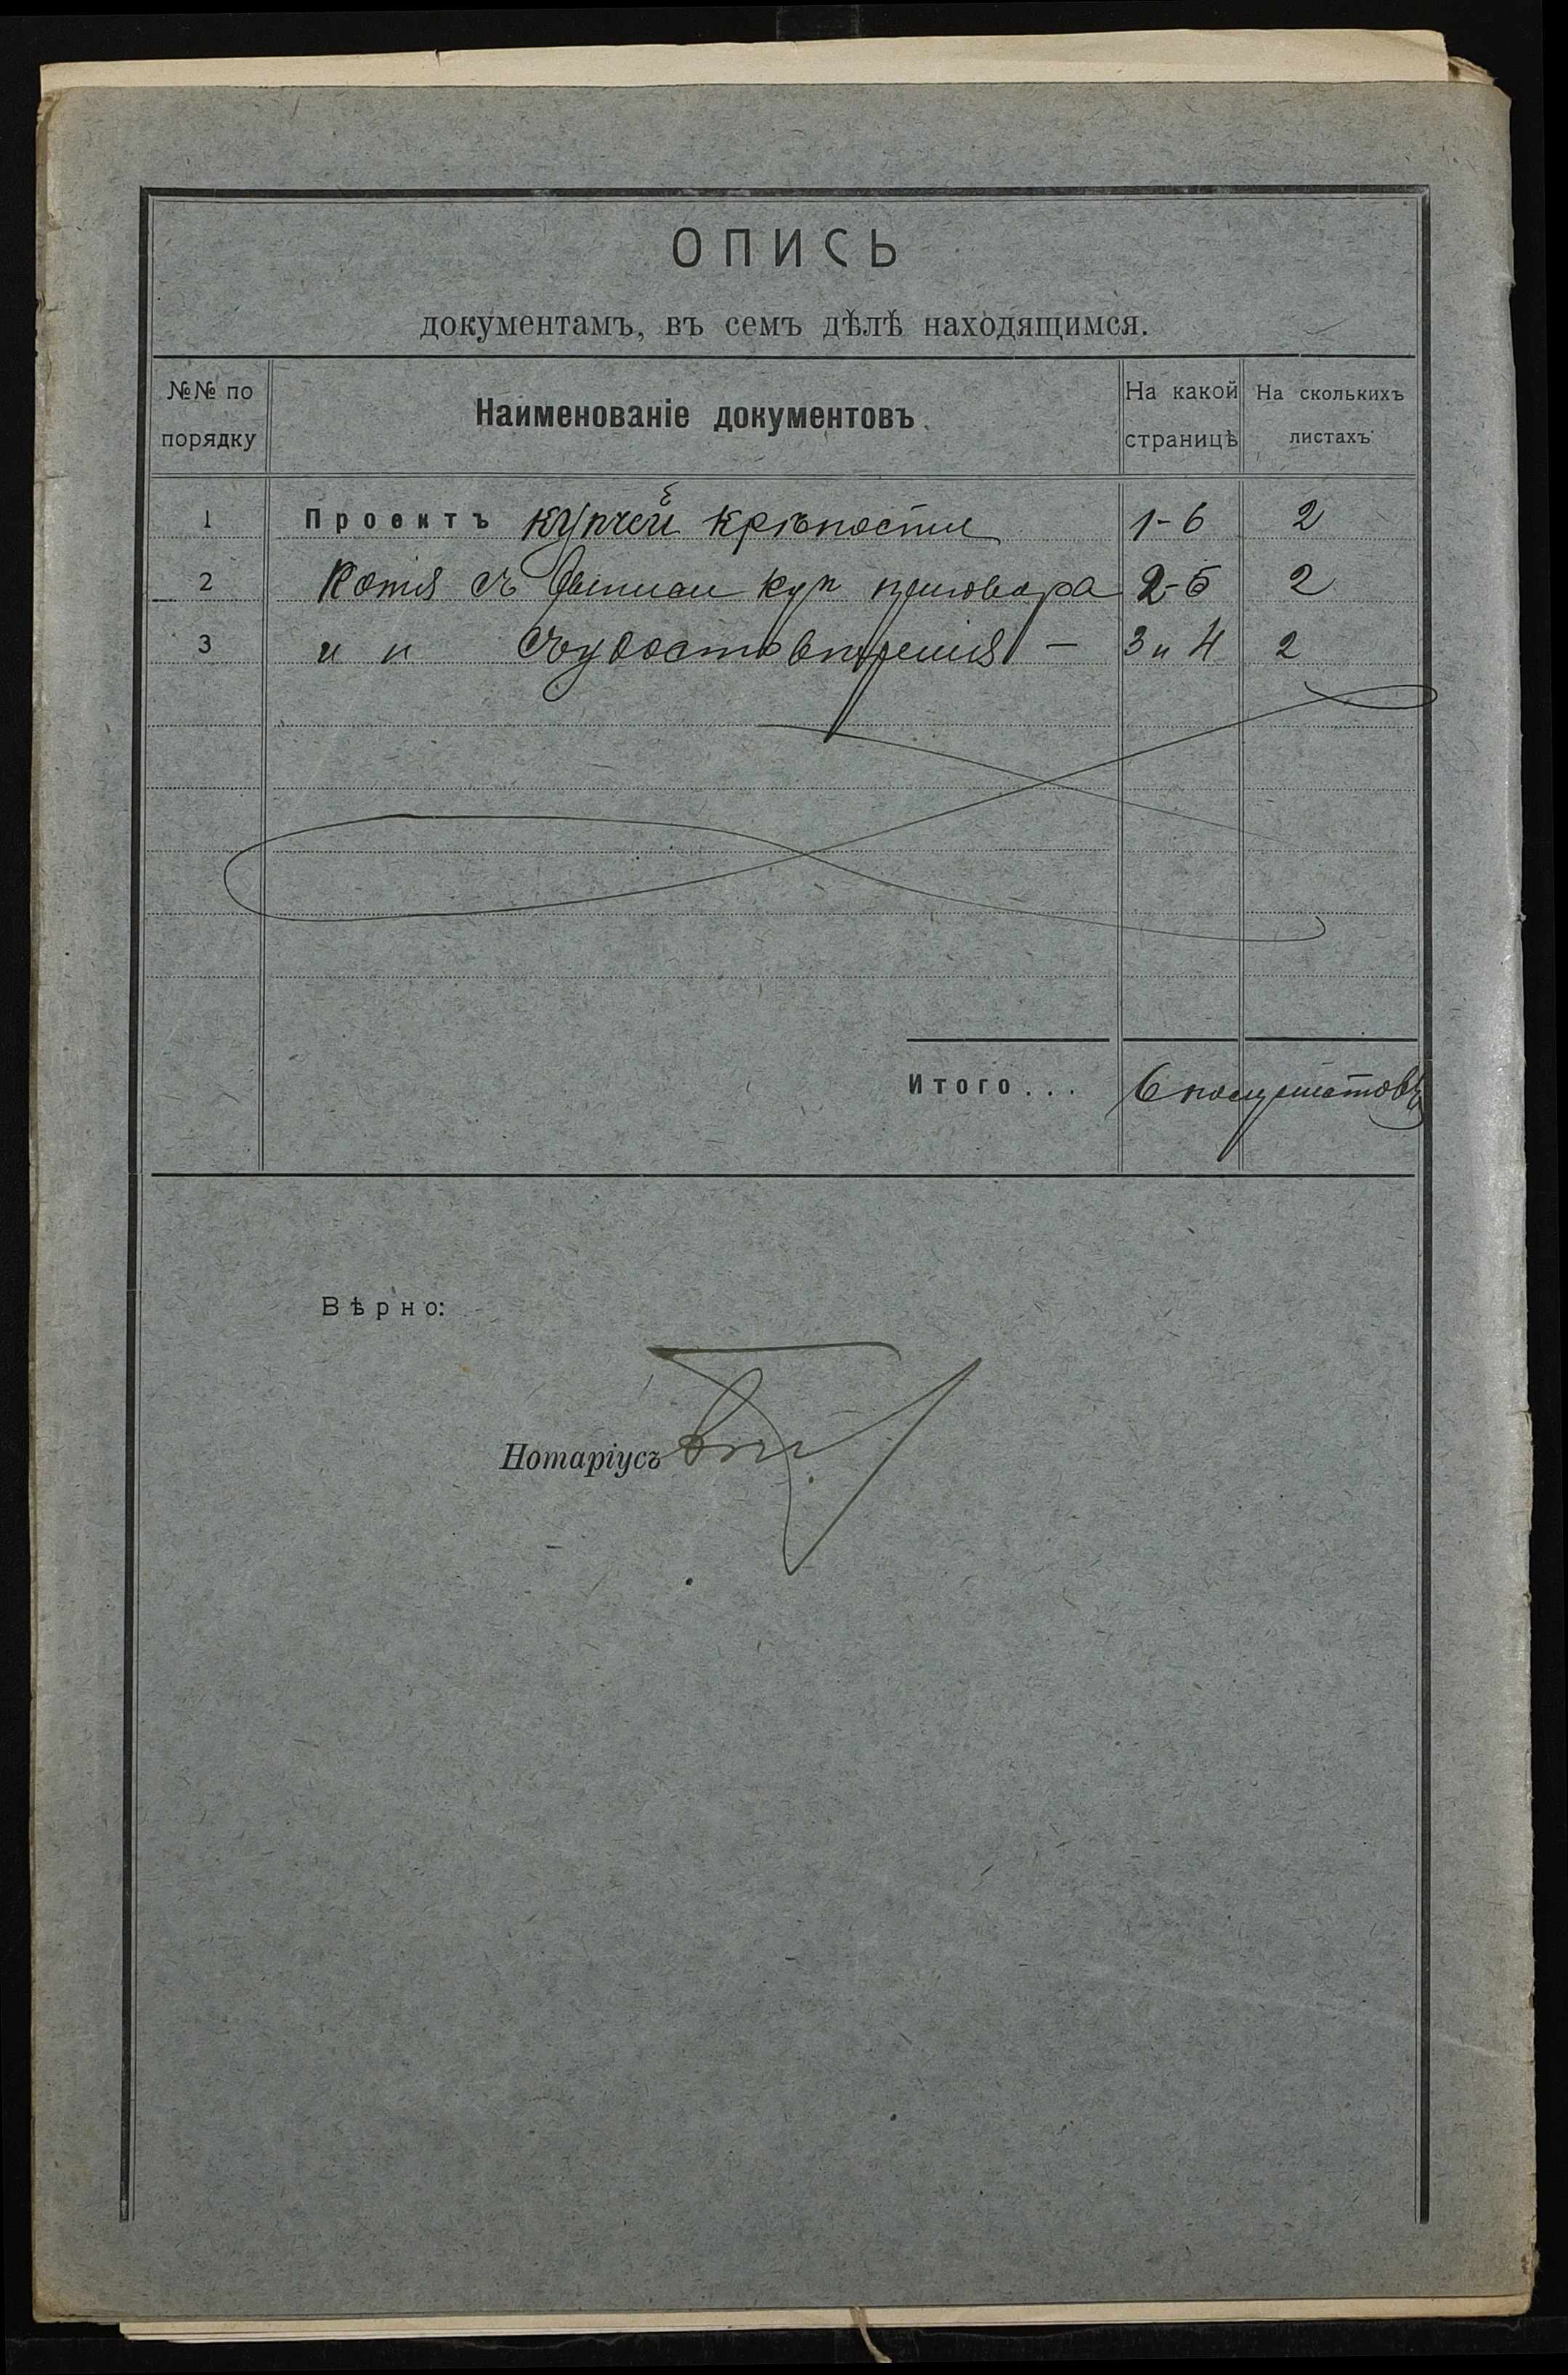 ОПИСЬ
документамъ, въ семъ дѣлѣ находящимся.
№№ по порядку
Наименованіе документовъ.
На какой страницѣ
На сколькихъ листахъ
1 Проектъ купчей крѣпости 1-6 2
2 Копія съ выписи куп приговора 2-5 2
3 и и съ удостовѣренія — 3 и 4 2
Итого... 6 полулистовъ
Вѣрно:
Нотаріусъ